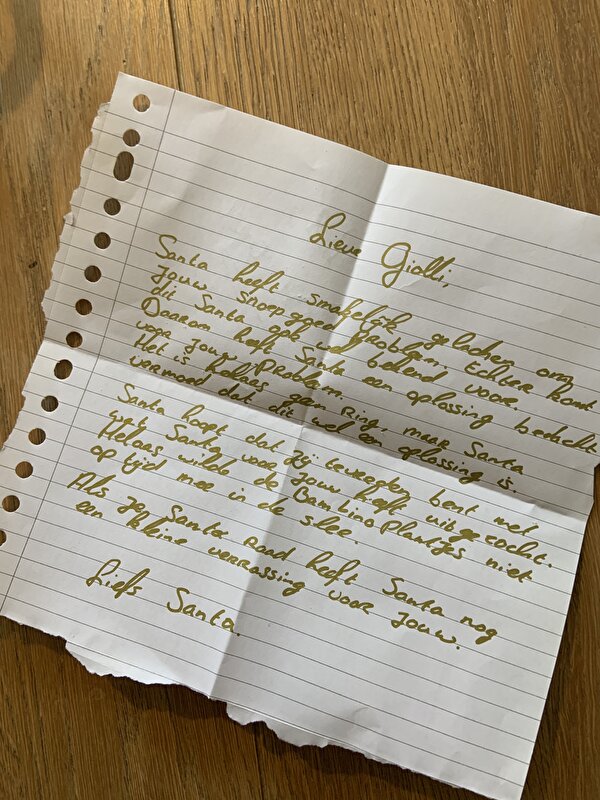 Lieve Giolli,
Santa heeft smakelijk gelachen om
jouw snoepgoed probleem. Echter komt
dit Santa ook wel bekend voor.
Daarom heeft Santa een oplossing bedacht
voor jouw probleem.
Het is helaas geen Ring, maar Santa
vermoed dat dit wel een oplossing is.
Santa hoopt dat jij tevreden bent met
wat Santa voor jouw heeft uitgezocht.
Helaas wilde de Bambino Plaatjes niet
op tijd mee in de slee.
Als jij Santa raad heeft Santa nog
een kleine verrassing voor jouw.
Liefs Santa.